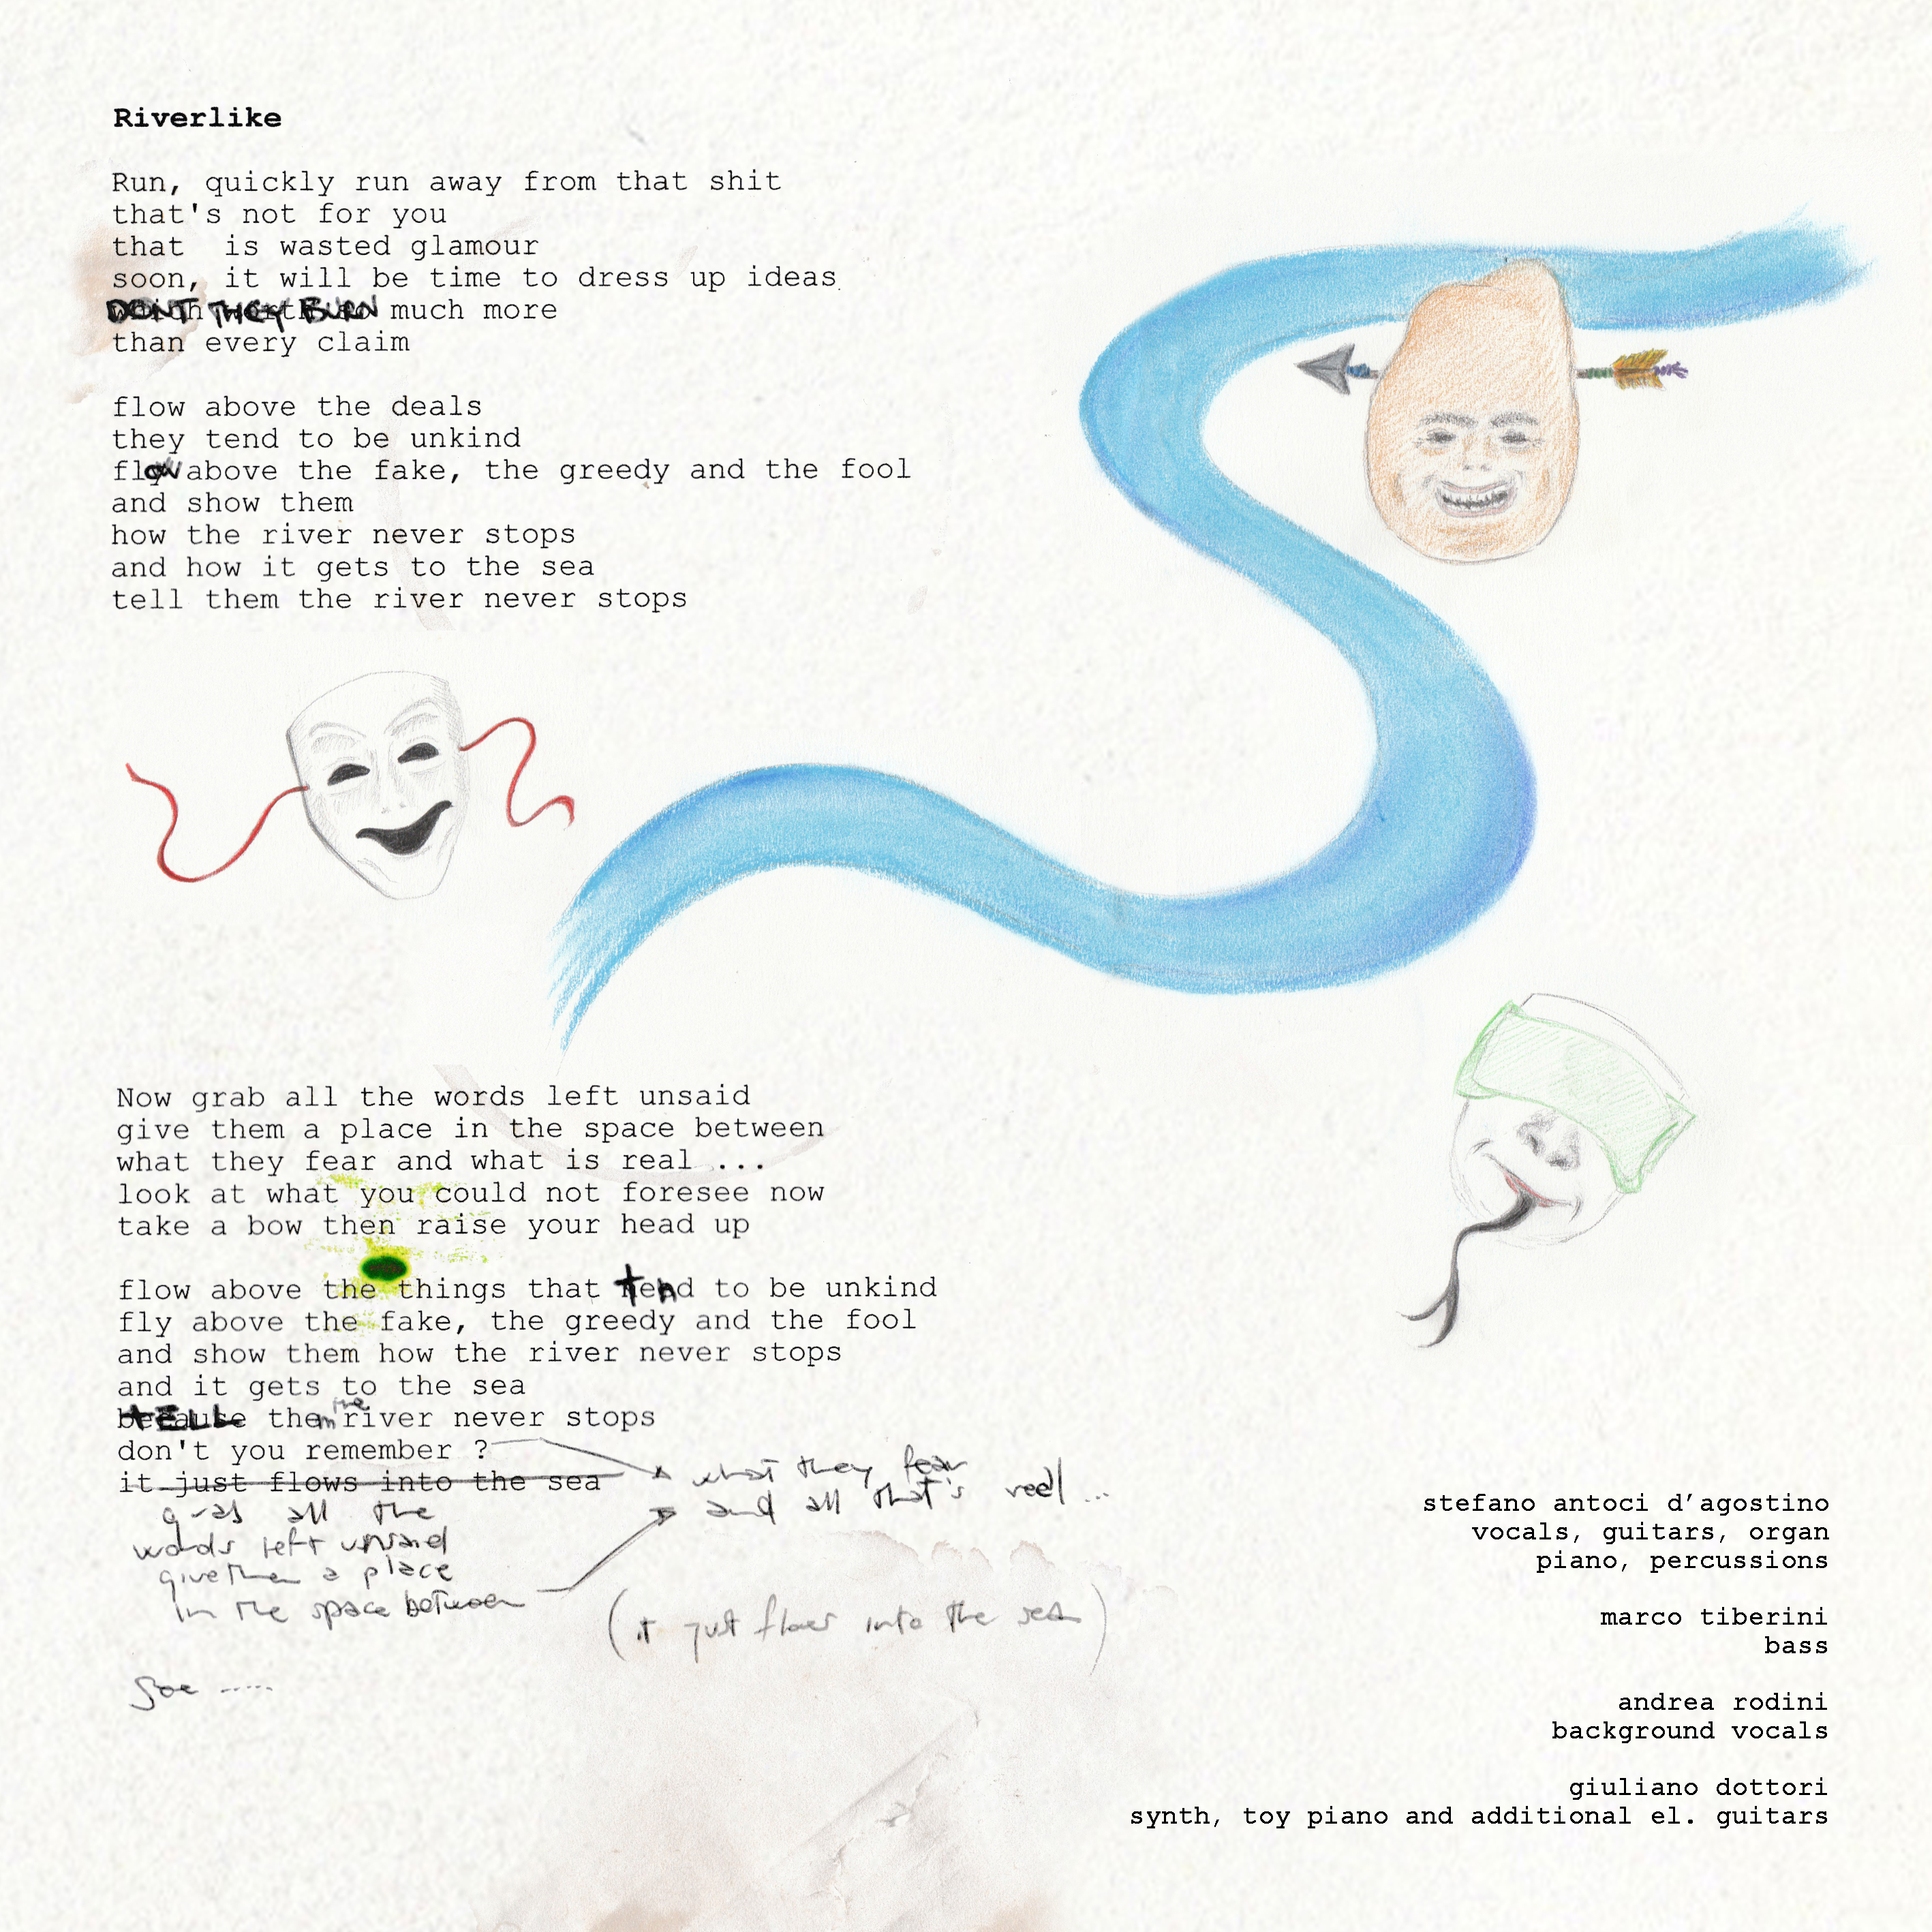 Riverlike
Run, quickly run away from that shit
that's not for you
that is wasted glamour
soon, it will be time to dress up ideas
DON'T THEY BURN much more
than every claim
flow above the deals
they tend to be unkind
flow above the fake, the greedy and the fool
and show them
how the river never stops
and how it gets to the sea
tell them the river never stops
Now grab all the words left unsaid
give them a place in the space between
what they fear and what is real ...
look at what you could not foresee now
take a bow then raise your head up
flow above the things that tend to be unkind
fly above the fake, the greedy and the fool
and show them how the river never stops
and it gets to the sea
tELL them the river never stops
don't you remember ?
it just flows into the sea
what they fear
and all that's real ...
grab all the
words left unsaid
give them a place
in the space between
(it just flows into the sea)
stefano antoci d'agostino
vocals, guitars, organ
piano, percussions
marco tiberini
bass
andrea rodini
background vocals
giuliano dottori
synth, toy piano and additional el. guitars